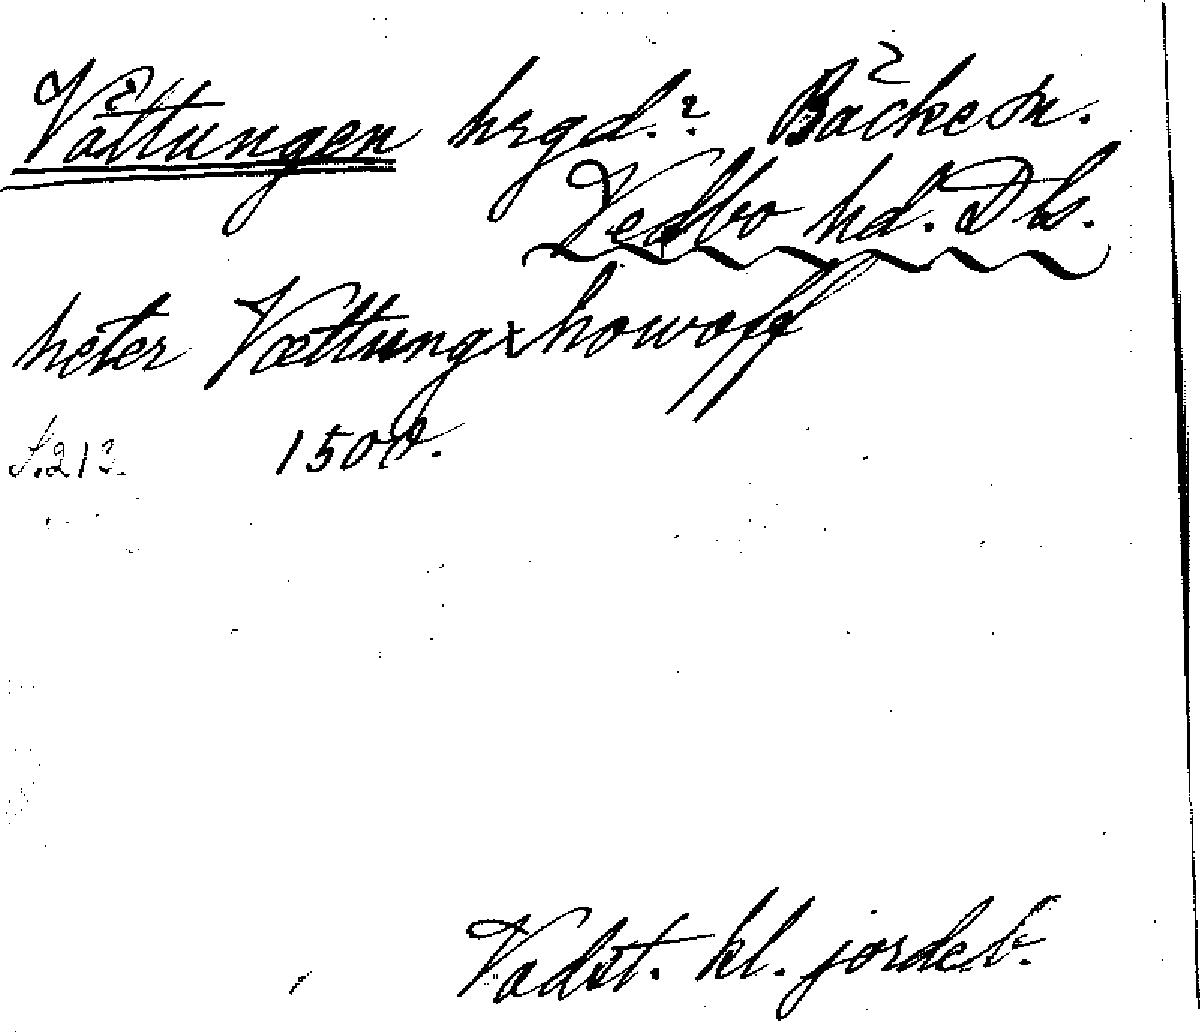 Vättungen hrgd.? Bäcke sn.
Vedbo hd. Dls.
heter Vættungxhowoff
S. 213. 1500.
Vadst. kl. jordeb.